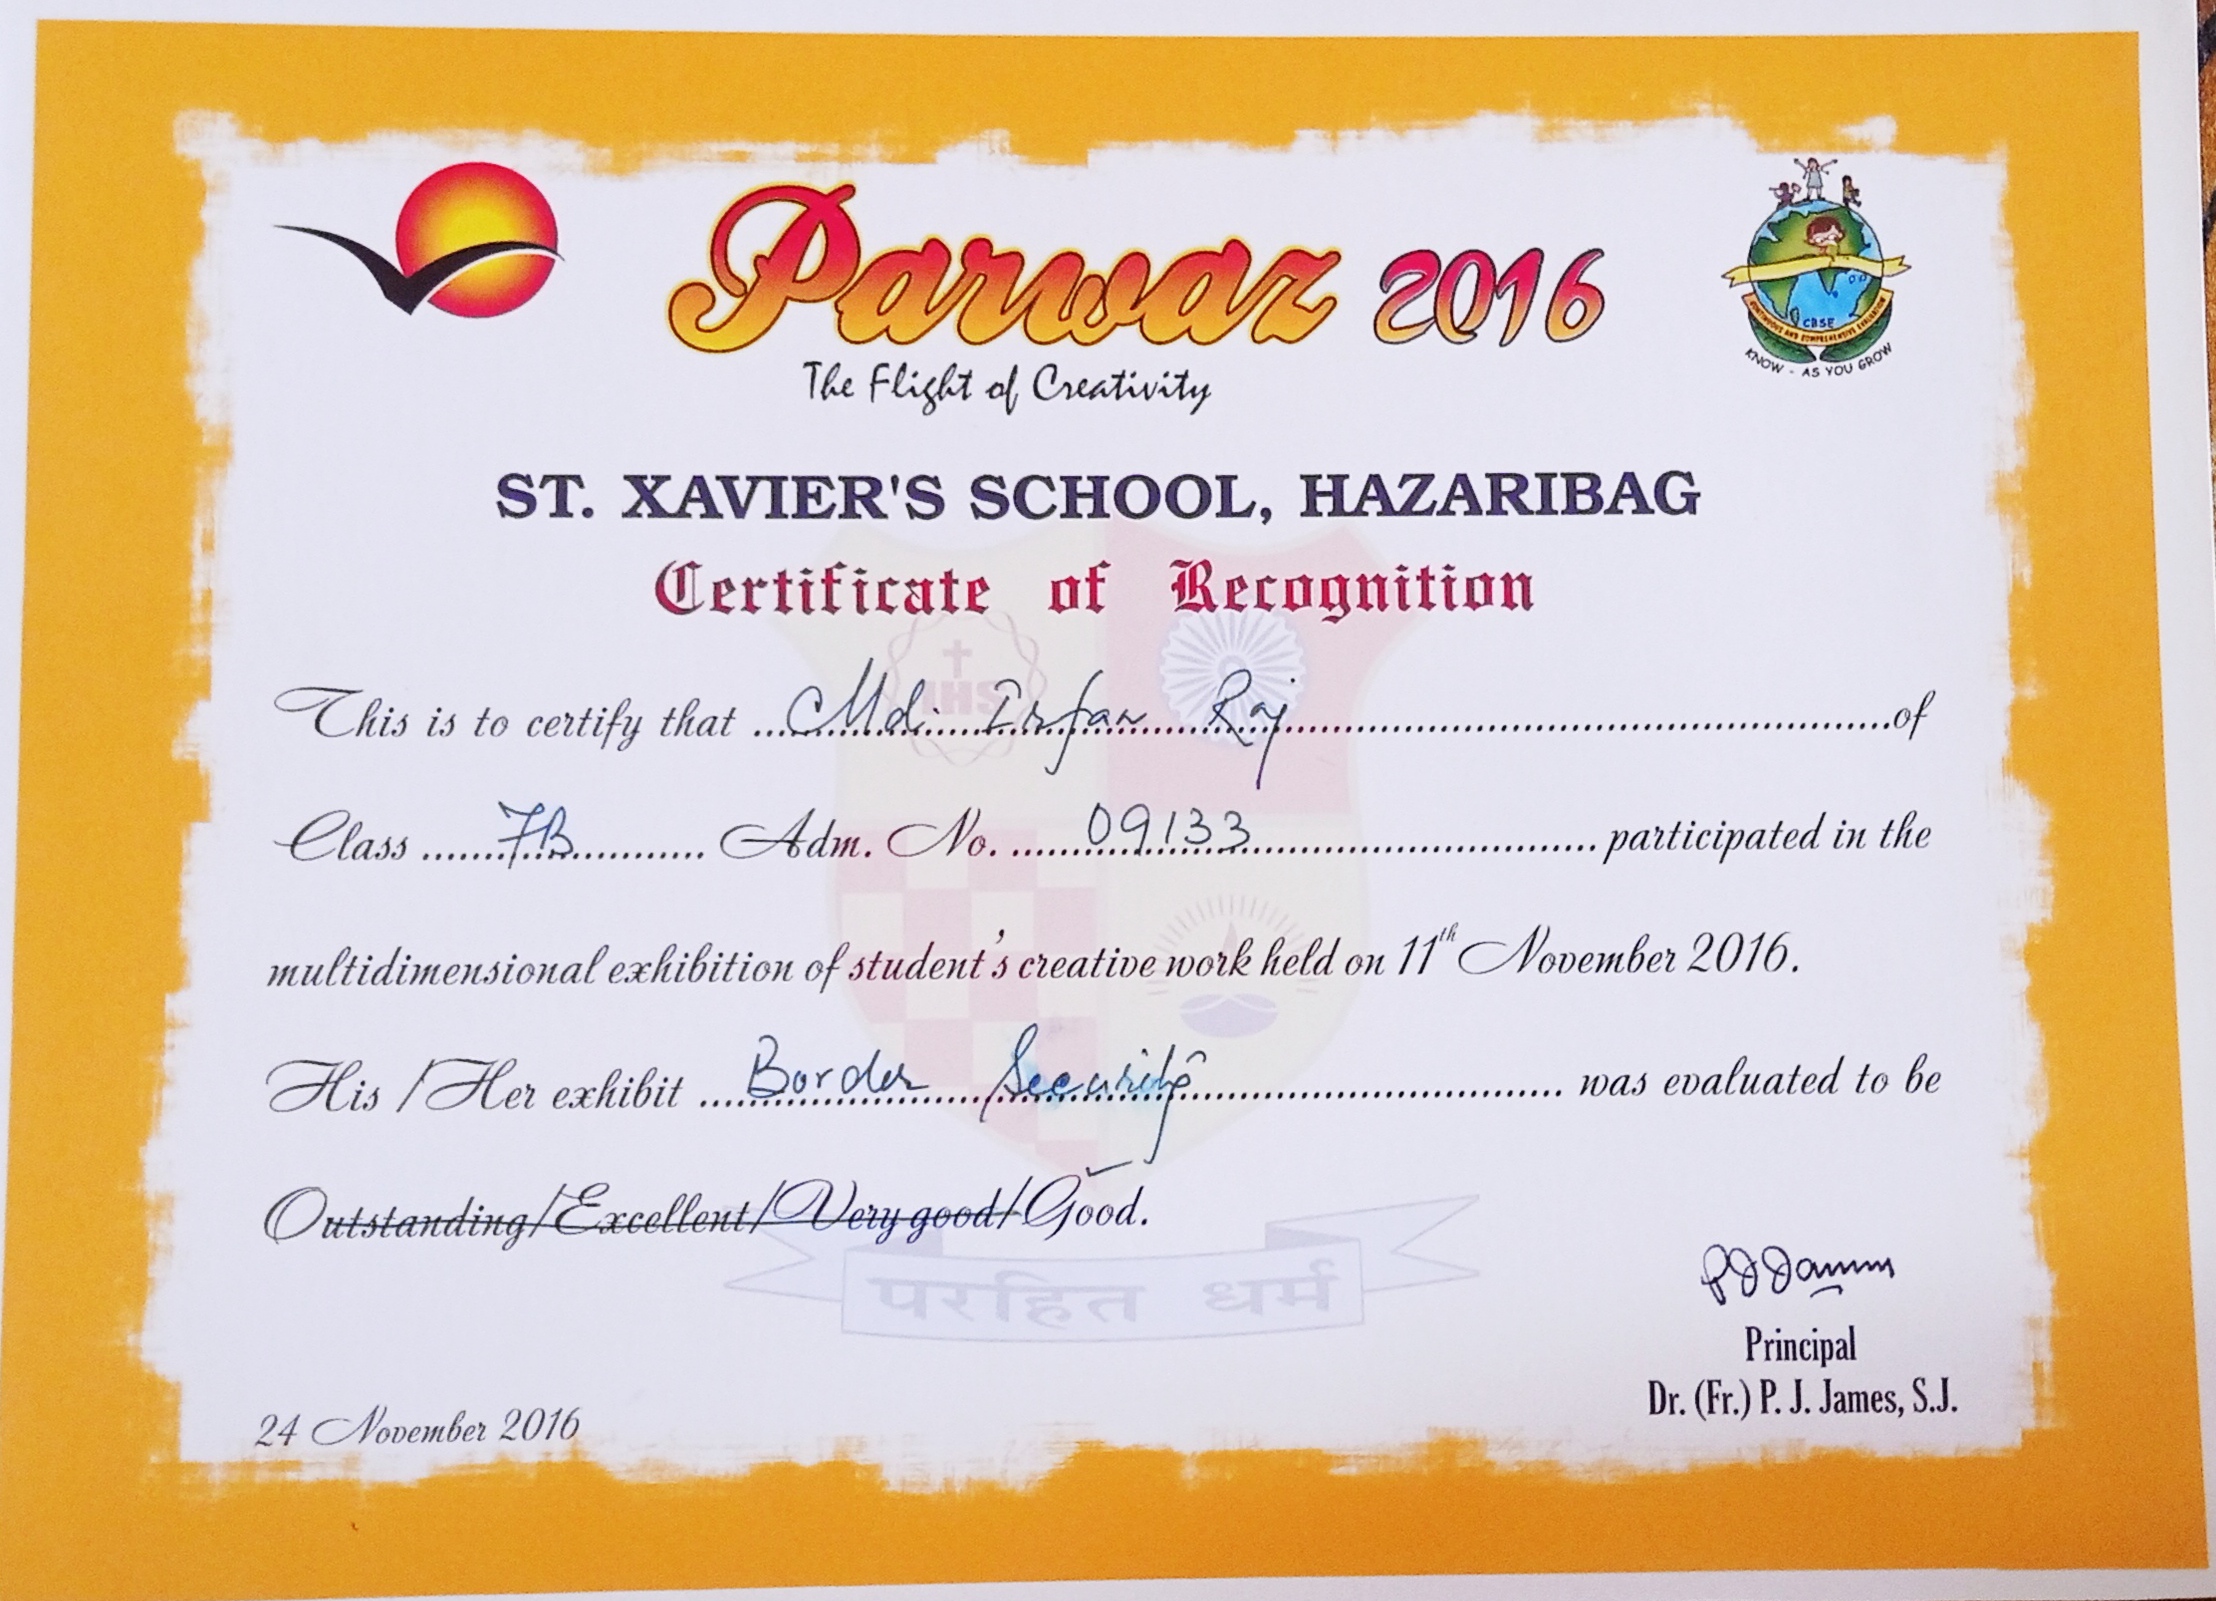 Parwaz 2016
The Flight of Creativity
CBSE
CONTINUOUS AND COMPREHENSIVE EVALUATION
KNOW - AS YOU GROW
ST. XAVIER'S SCHOOL, HAZARIBAG
Certificate of Recognition
IHS
This is to certify that Md. Irfan Raj of
Class 7B Adm. No. 09133 participated in the
multidimensional exhibition of student's creative work held on 11th November 2016.
His / Her exhibit Border Security was evaluated to be
Outstanding/Excellent/Very good/Good.
परहित धर्म
P J James
Principal
Dr. (Fr.) P. J. James, S.J.
24 November 2016